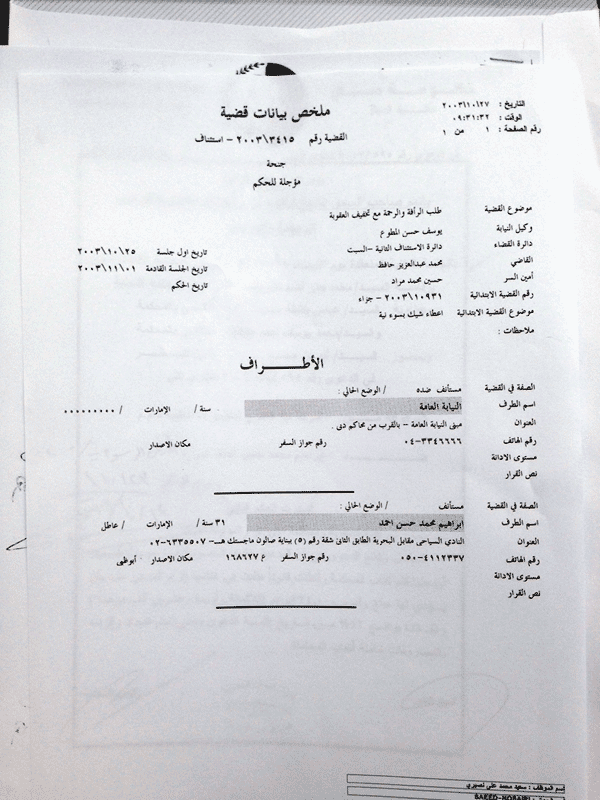 التاريخ : ٢٠٠٣/١٠/٢٧
الوقت : ٠٩:٣١:٣٢
رقم الصفحة : ١ من ١
ملخص بيانات قضية
القضية رقم ٢٠٠٣/٣٤١٥ – استئناف
جنحة
مؤجلة للحكم
موضوع القضية طلب الرأفة والرحمة مع تخفيف العقوبة
وكيل النيابة يوسف حسن المطوع
دائرة القضاء دائرة الاستئناف الثانية –السبت تاريخ اول جلسة ٢٠٠٣/١٠/٢٥
القاضي محمد عبدالعزيز حافظ تاريخ الجلسة القادمة ٢٠٠٣/١١/٠١
أمين السر حسين محمد مراد تاريخ الحكم
رقم القضية الابتدائية ٢٠٠٣/١٠٩٣١ – جزاء
موضوع القضية الابتدائية اعطاء شيك بسوء نية
ملاحظات :
الأطــــــراف
الصفة في القضية مستأنف ضده / الوضع الحالي :
اسم الطرف النيابة العامة سنة / الإمارات / ..........
العنوان مبنى النيابة العامة – بالقرب من محاكم دبي .
رقم الهاتف ٠٤-٣٣٤٦٦٦٦ رقم جواز السفر مكان الاصدار
مستوى الادانة
نص القرار
الصفة في القضية مستأنف / الوضع الحالي :
اسم الطرف إبراهيم محمد حسن احمد ٣١ سنة / الإمارات / عاطل
العنوان النادي السياحي مقابل البحرية الطابق الثاني شقة رقم (٥) بناية صالون ماجستك هـ– ٠٢-٦٣٣٥٥٠٧
رقم الهاتف ٠٥٠-٤١١٢٣٣٧ رقم جواز السفر ع ١٦٨٦٢٧ مكان الاصدار أبوظبي
مستوى الادانة
نص القرار
اسم الموظف : سعيد محمد علي نصيري